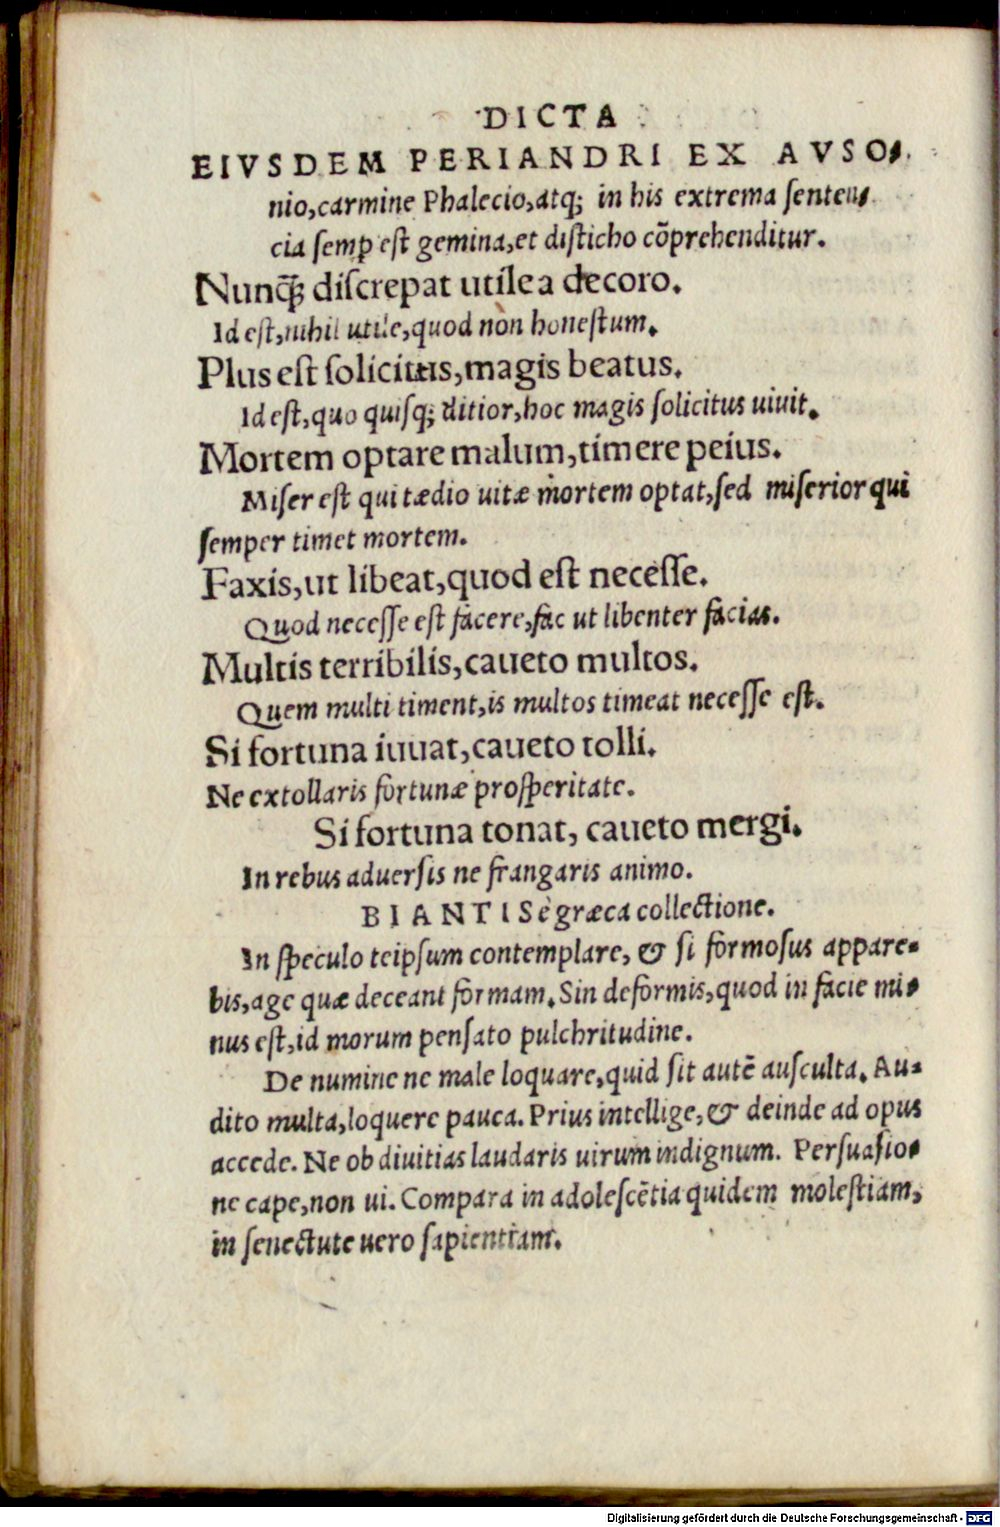 DICTA
EIVSDEM PERIANDRI EX AVSO-
nio, carmine Phalecio, atq; in his extrema senten-
cia semp est gemina, et disticho cōprehenditur.
Nunq̃; discrepat utile a decoro.
Id est, nihil utile, quod non honestum.
Plus est solicitus, magis beatus.
Id est, quo quisq; ditior, hoc magis solicitus uiuit.
Mortem optare malum, timere peius.
Miser est qui tædio uitæ mortem optat, sed miserior qui
semper timet mortem.
Faxis, ut libeat, quod est necesse.
Quod necesse est facere, fac ut libenter facias.
Multis terribilis, caueto multos.
Quem multi timent, is multos timeat necesse est.
Si fortuna iuuat, caueto tolli.
Ne extollaris fortunæ prosperitate.
Si fortuna tonat, caueto mergi.
In rebus aduersis ne frangaris animo.
BIANTIS è græca collectione.
In speculo teipsum contemplare, & si formosus appare-
bis, age quæ deceant formam. Sin deformis, quod in facie mi-
nus est, id morum pensato pulchritudine.
De numine ne male loquare, quid sit autē ausculta. Au-
dito multa, loquere pauca. Prius intellige, & deinde ad opus
accede. Ne ob diuitias laudaris uirum indignum. Persuasio-
ne cape, non ui. Compara in adolescētia quidem molestiam,
in senectute uero sapientiam.
Digitalisierung gefördert durch die Deutsche Forschungsgemeinschaft - DFG